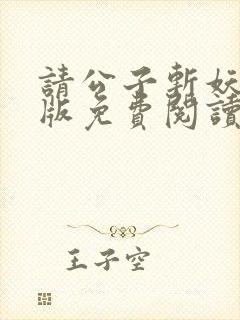 請公子斬妖
版免費閱讀
王子空